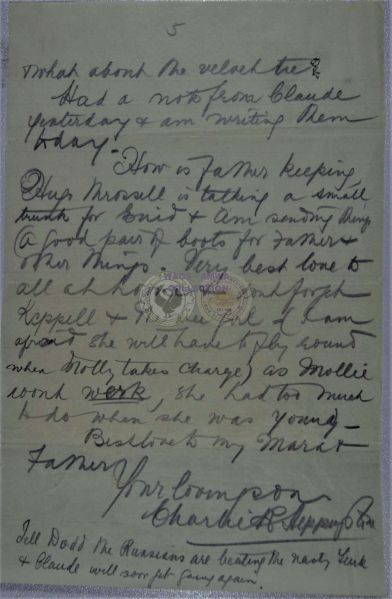 5
& what about the velvet tie?
Had a note from Claude
yesterday & am writing them
today -
How is Father keeping
Hugs Mrossell is taking a small
trunk for Enid & am sending things
(a good pair of boots for Father &
other things. Very best love to
all at home dont forget
Keppell & I am
afraid she will have to fly around
when Molly takes charge) as Mollie
wont work, she had too much
to do when she was young -
Best love to my Mara &
Father
Your loving son
Charlie
Tell Dodd the Russians are beating the nasty Turk
& Claude will soon get going again.